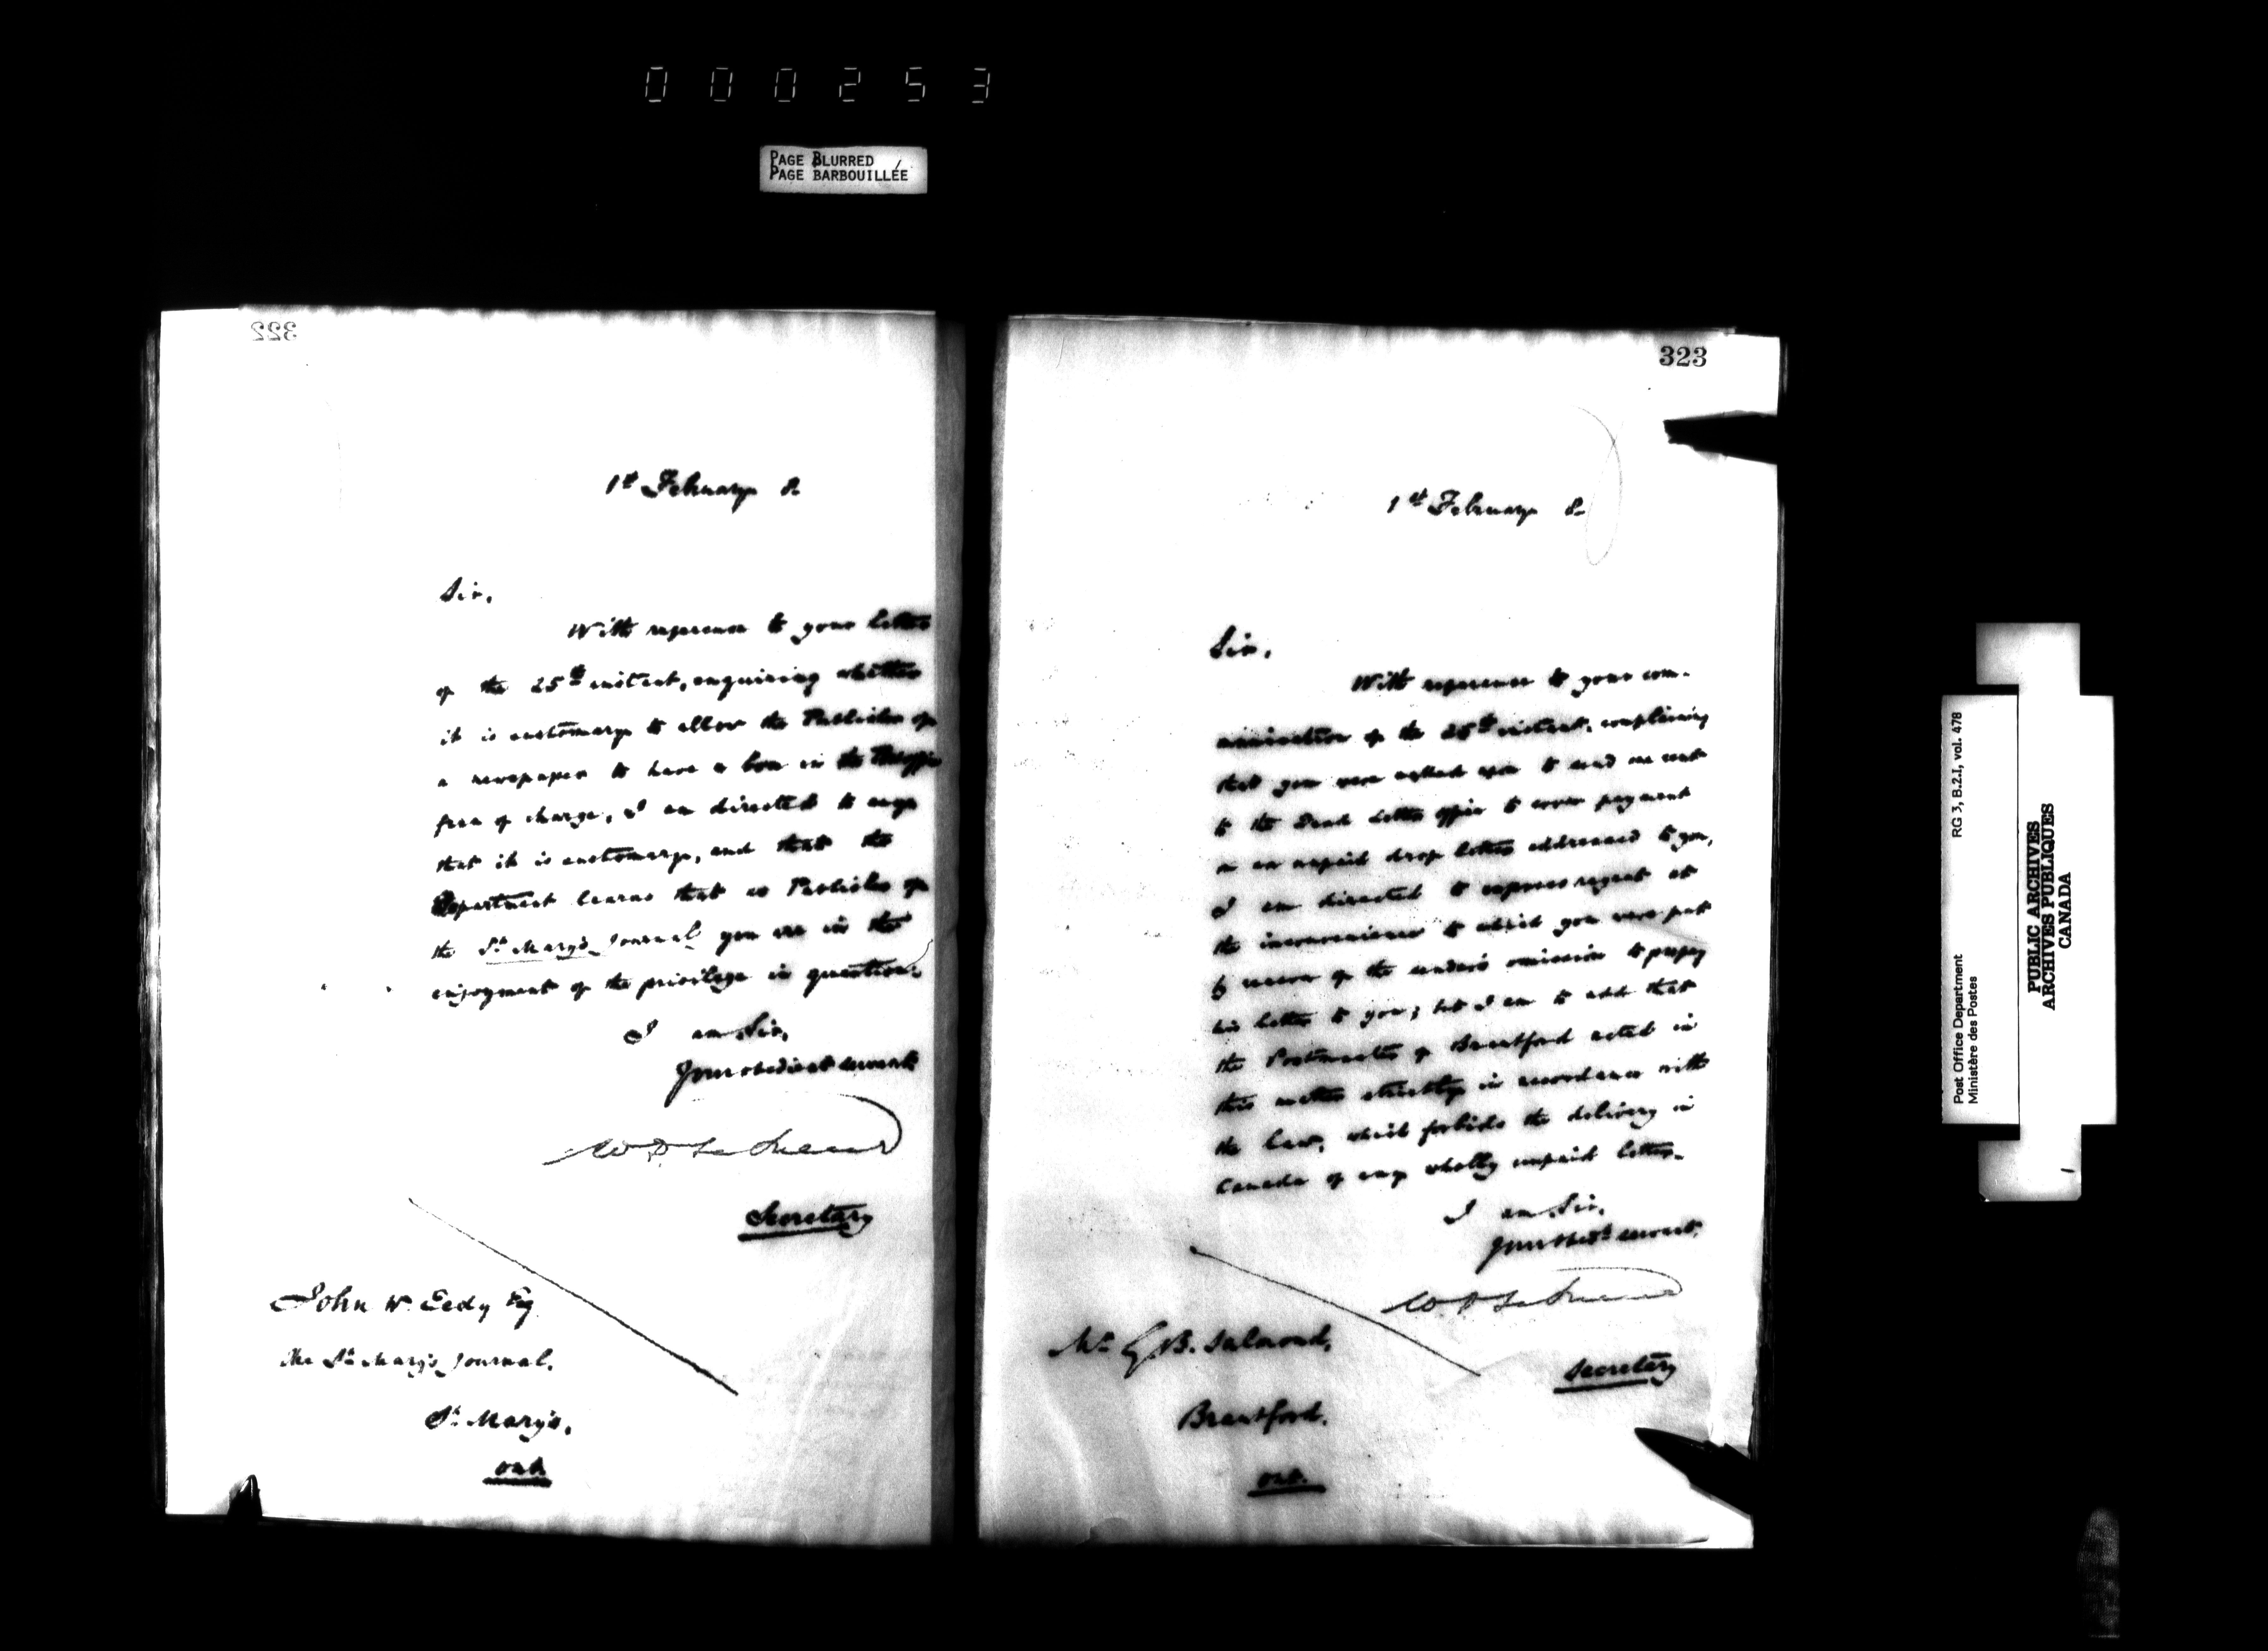 000253
PAGE BLURRED
PAGE BARBOUILLÉE
322
1st February 8
Sir,
With reference to your letter
of the 25th instant, enquiring whether
it is customary to allow the Publisher of
a newspaper to have a box in the Postoffice
free of charge, I am directed to say
that it is customary, and that the
Department learns that as Publisher of
the St. Mary's Journal you are in the
enjoyment of the privilege in question.
I am, Sir,
Your obedient servant
Secretary
John W. Eedy Esq
The St. Mary's Journal,
St. Mary's,
Ont.
323
1st February 8
Sir,
With reference to your com-
munication of the 25th instant, complaining
that you were called upon to send one cent
to the Dead Letter Office to cover payment
on an unpaid drop letter addressed to you,
I am directed to express regret at
the inconvenience to which you were put
by reason of the sender's omission to prepay
his letter to you; but I am to add that
the Postmaster of Brantford acted in
this matter strictly in accordance with
the law, which forbids the delivery in
Canada of any wholly unpaid letter.
I am, Sir,
Your obedt servant,
Secretary
Mr. G. B. Salmond,
Brantford.
Ont.
Post Office Department RG 3, B.2.I, vol. 478
Ministère des Postes
PUBLIC ARCHIVES
ARCHIVES PUBLIQUES
CANADA